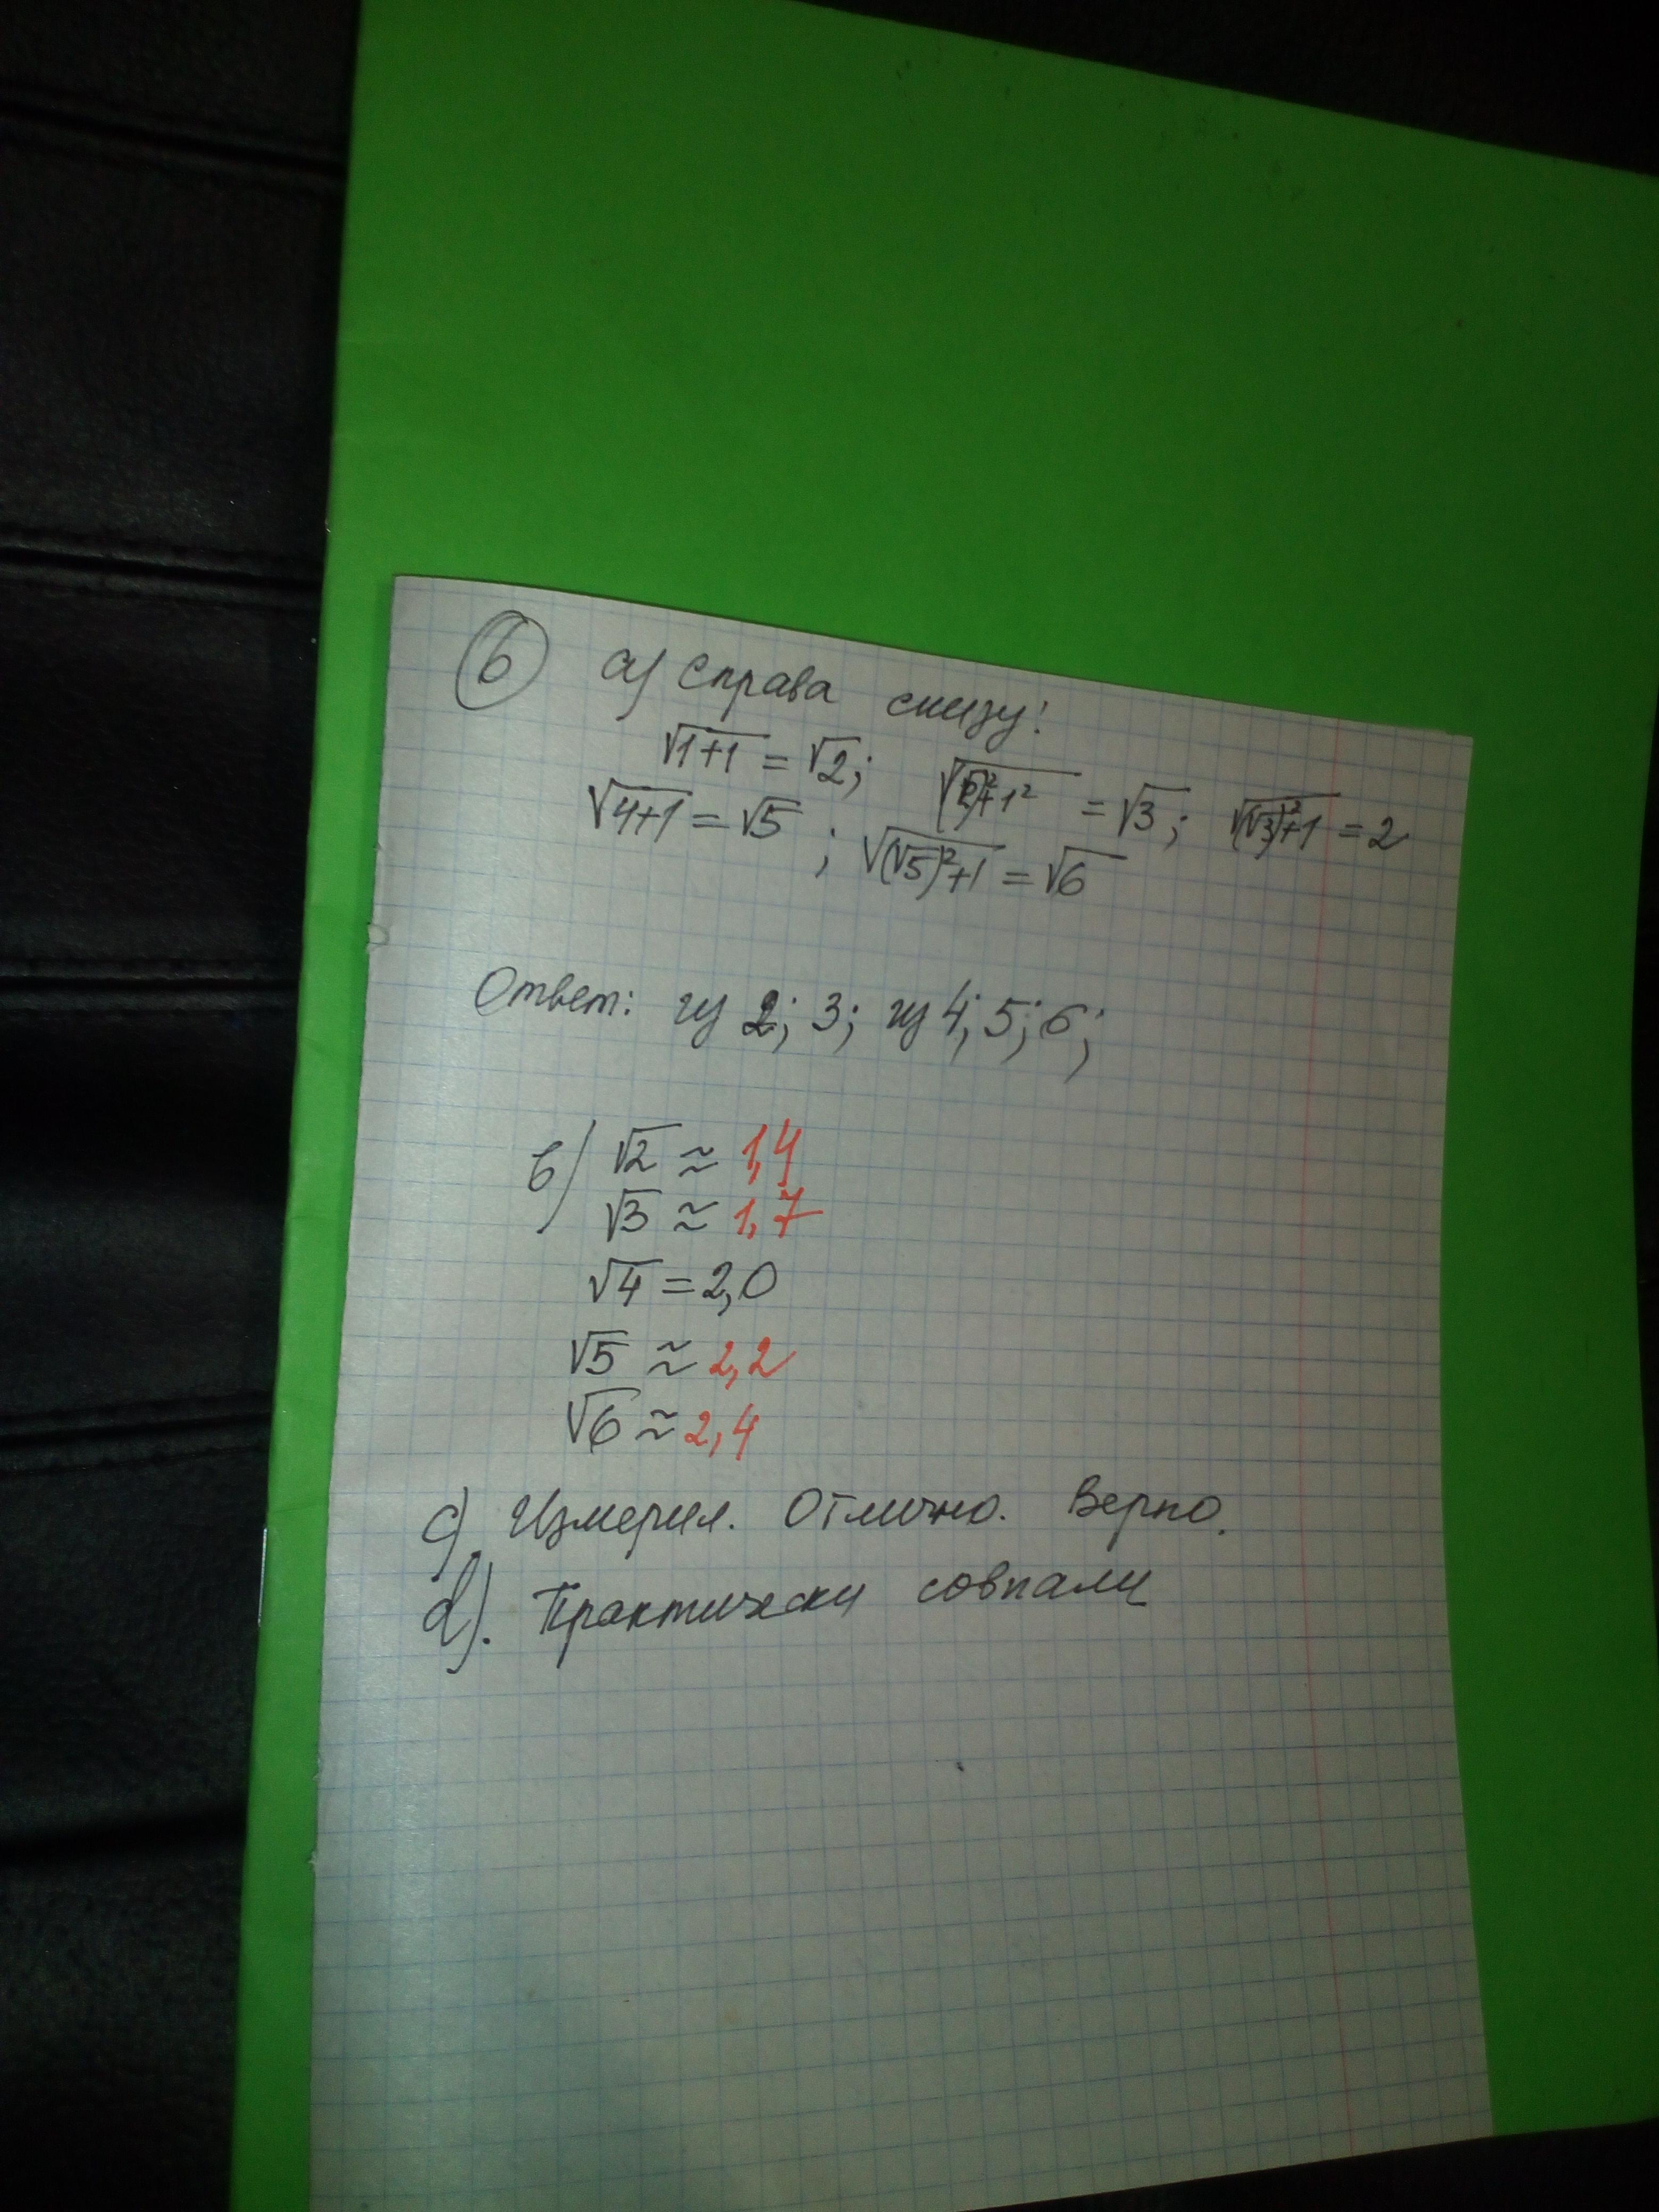 6 а) Справа снизу:
√1+1 = √2; √(√2)²+1² = √3; √(√3)²+1 = 2
√4+1 = √5 ; √(√5)²+1 = √6
Ответ: из 2; 3; из 4; 5; 6;
b) √2 ≈ 1,4
√3 ≈ 1,7
√4 = 2,0
√5 ≈ 2,2
√6 ≈ 2,4
c) Измерил. Отлично. Верно.
d). Практически совпали